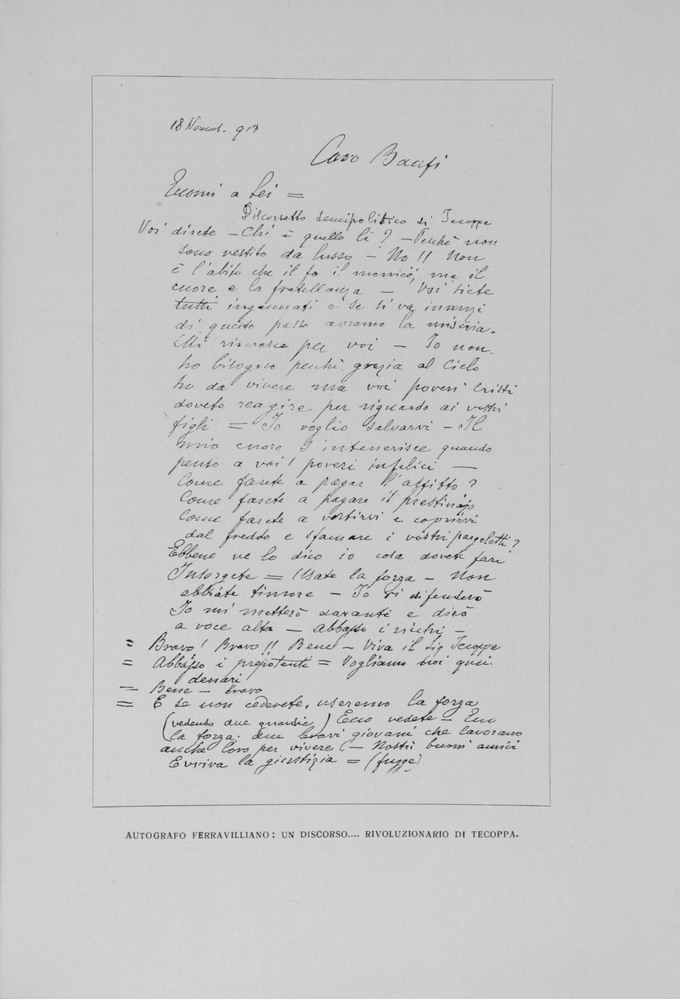 18 Novemb- 913
Caro Banfi
Eccomi a Lei =
Discorsetto semipolitico di Tecoppa
Voi direte - Chi è quello lì ? - Perchè non
sono vestito da lusso - No !! Non
è l'abito che il fa il monico, ma il
cuore e la fratellanza - Voi siete
tutti ingannati e se si va innanzi
di questo passo avremo la miseria.
Mi rincresce per voi - Io non
ho bisogno perchè grazia al Cielo
ho da vivere ma voi poveri Cristi
dovete reagire per riguardo ai vostri
figli = Io voglio salvarvi - Il
mio cuore s'intenerisce quando
penso a voi ! poveri infelici -
Come farete a pagar l'affitto ?
Come farete a pagare il prestinajo
Come farete a vestirvi e coprirvi
dal freddo e sfamare i vostri pargoletti ?
Ebbene ve lo dico io cosa dovete fare
Insorgete = Usate la forza - Non
abbiate timore - Io vi difenderò
Io mi metterò davanti e dirò
a voce alta - abbasso i ricchi -
= Bravo ! Bravo !! Bene - Viva il Sig Tecoppa
= Abbasso i prepotenti = Vogliamo noi quei
denari
- Bene - bravo
= E se non cederete, useremo la forza
(vedendo due guardie) Ecco vedete - Ecco
la forza. due bravi giovani che lavorano
anche loro per vivere - Nostri buoni amici
Evviva la giustizia = (fugge)
AUTOGRAFO FERRAVILLIANO: UN DISCORSO.... RIVOLUZIONARIO DI TECOPPA.